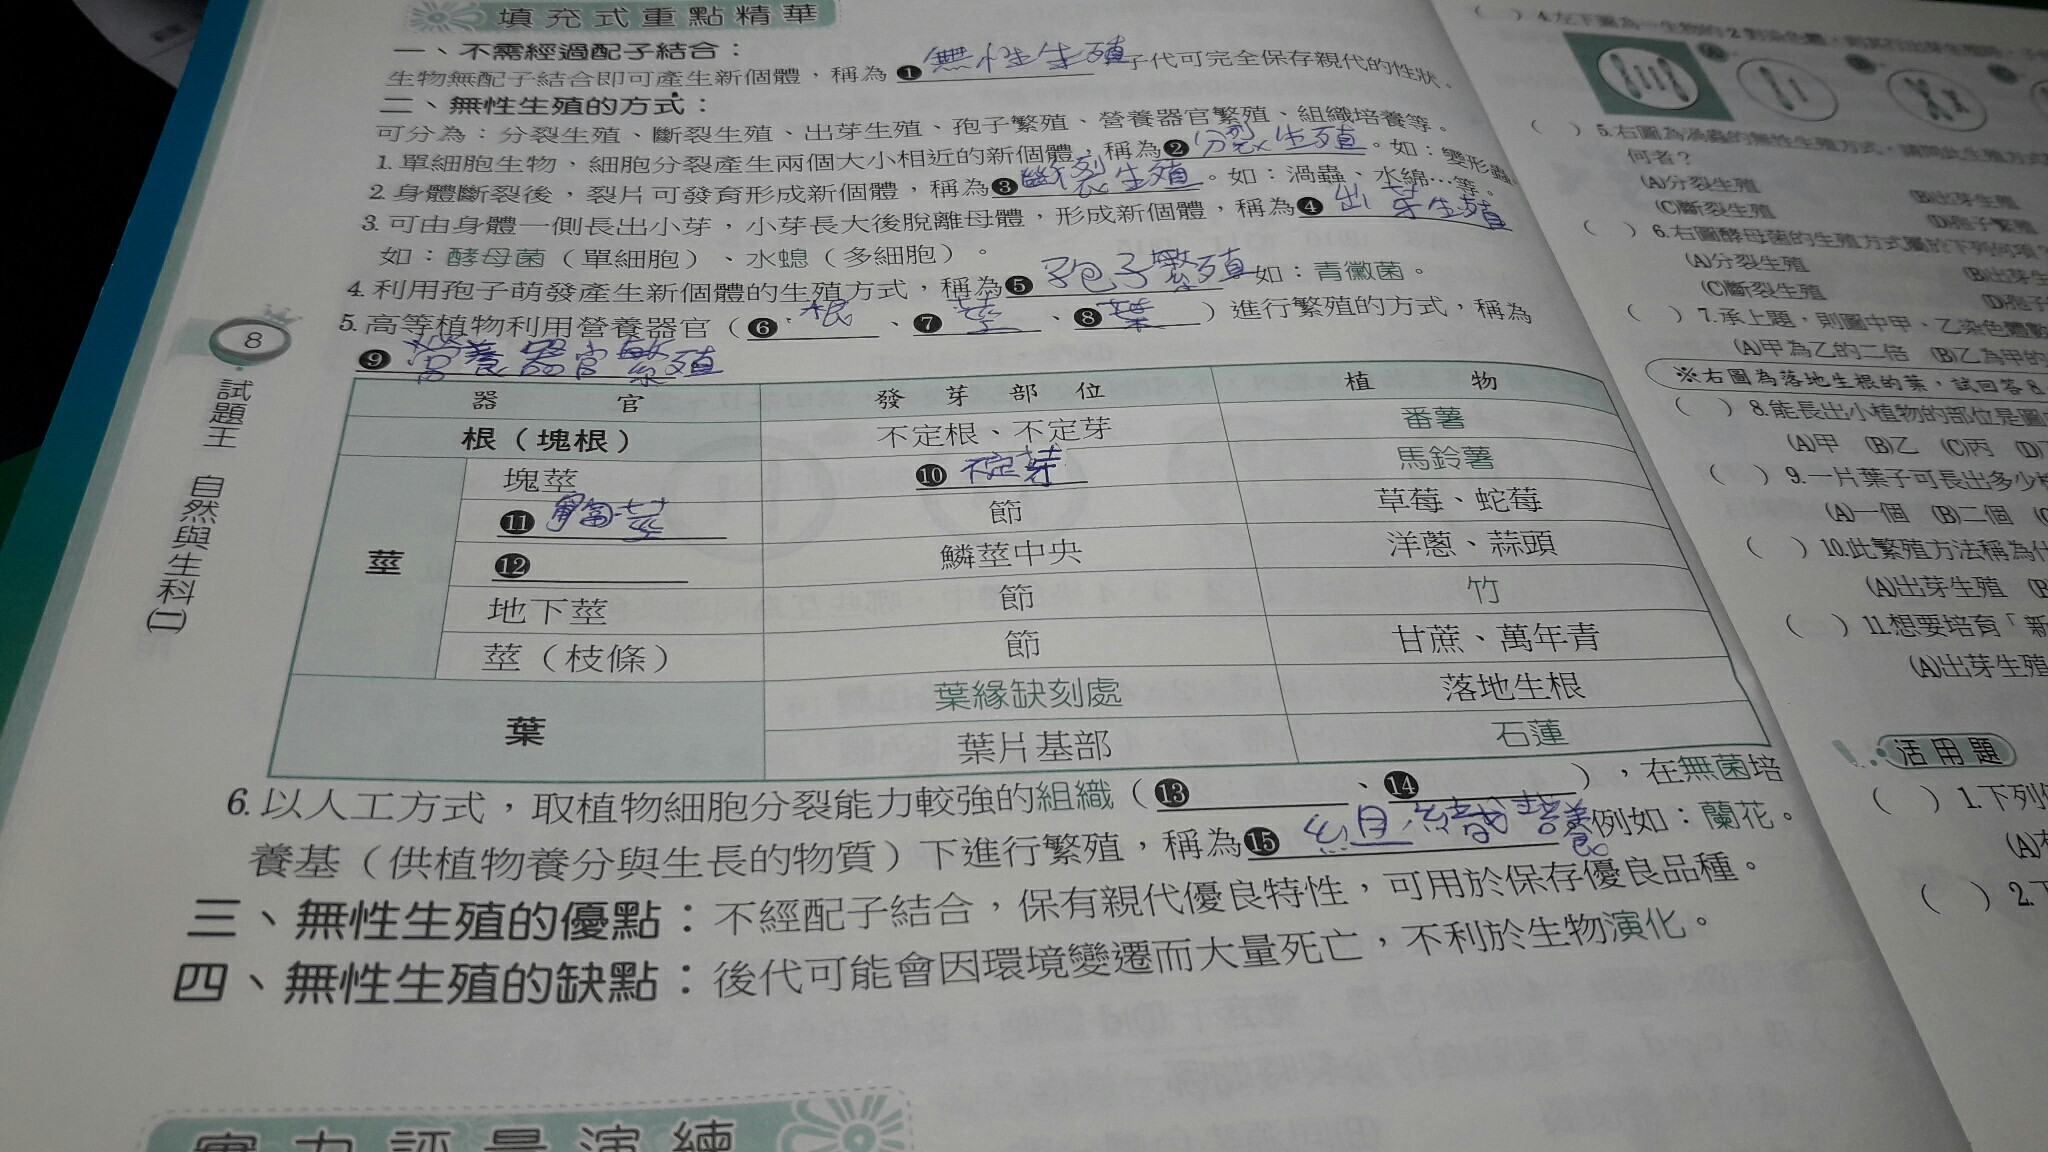 填充式重點精華
一、不需經過配子結合：
生物無配子結合即可產生新個體，稱為❶無性生殖子代可完全保存親代的性狀。
二、無性生殖的方式：
可分為：分裂生殖、斷裂生殖、出芽生殖、孢子繁殖、營養器官繁殖、組織培養等。
1.單細胞生物，細胞分裂產生兩個大小相近的新個體，稱為❷分裂生殖。如：變形蟲
2.身體斷裂後，裂片可發育形成新個體，稱為❸斷裂生殖。如：渦蟲、水綿…等。
3.可由身體一側長出小芽，小芽長大後脫離母體，形成新個體，稱為❹出芽生殖
如：酵母菌（單細胞）、水螅（多細胞）。
4.利用孢子萌發產生新個體的生殖方式，稱為❺孢子繁殖如：青黴菌。
5.高等植物利用營養器官（❻根、❼莖、❽葉）進行繁殖的方式，稱為
❾營養器官繁殖
器官 發芽部位 植物
根（塊根） 不定根、不定芽 番薯
莖 塊莖 ❿不定芽 馬鈴薯
⓫匍匐莖 節 草莓、蛇莓
⓬ 鱗莖中央 洋蔥、蒜頭
地下莖 節 竹
莖（枝條） 節 甘蔗、萬年青
葉 葉緣缺刻處 落地生根
葉片基部 石蓮
6.以人工方式，取植物細胞分裂能力較強的組織（⓭、⓮），在無菌培
養基（供植物養分與生長的物質）下進行繁殖，稱為⓯組織培養例如：蘭花。
三、無性生殖的優點：不經配子結合，保有親代優良特性，可用於保存優良品種。
四、無性生殖的缺點：後代可能會因環境變遷而大量死亡，不利於生物演化。
實力評量演練
8
試題王 自然與生科(二)
（ ）4.左下圖為一生物的2對染色體，
（ ）5.右圖為渦蟲的無性生殖方式，請問此生殖方式
何者？
(A)分裂生殖 (B)出芽生殖
(C)斷裂生殖 (D)孢子繁殖
（ ）6.右圖酵母菌的生殖方式屬於下列何項？
(A)分裂生殖 (B)出芽生
(C)斷裂生殖 (D)孢子
（ ）7.承上題，則圖中甲、乙染色體數
(A)甲為乙的二倍 (B)乙為甲的
※右圖為落地生根的葉，試回答8.
（ ）8.能長出小植物的部位是圖
(A)甲 (B)乙 (C)丙 (D)
（ ）9.一片葉子可長出多少
(A)一個 (B)二個
（ ）10.此繁殖方法稱為什
(A)出芽生殖
（ ）11.想要培育「新
(A)出芽生殖
活用題
（ ）1.下列
(A)
（ ）2.